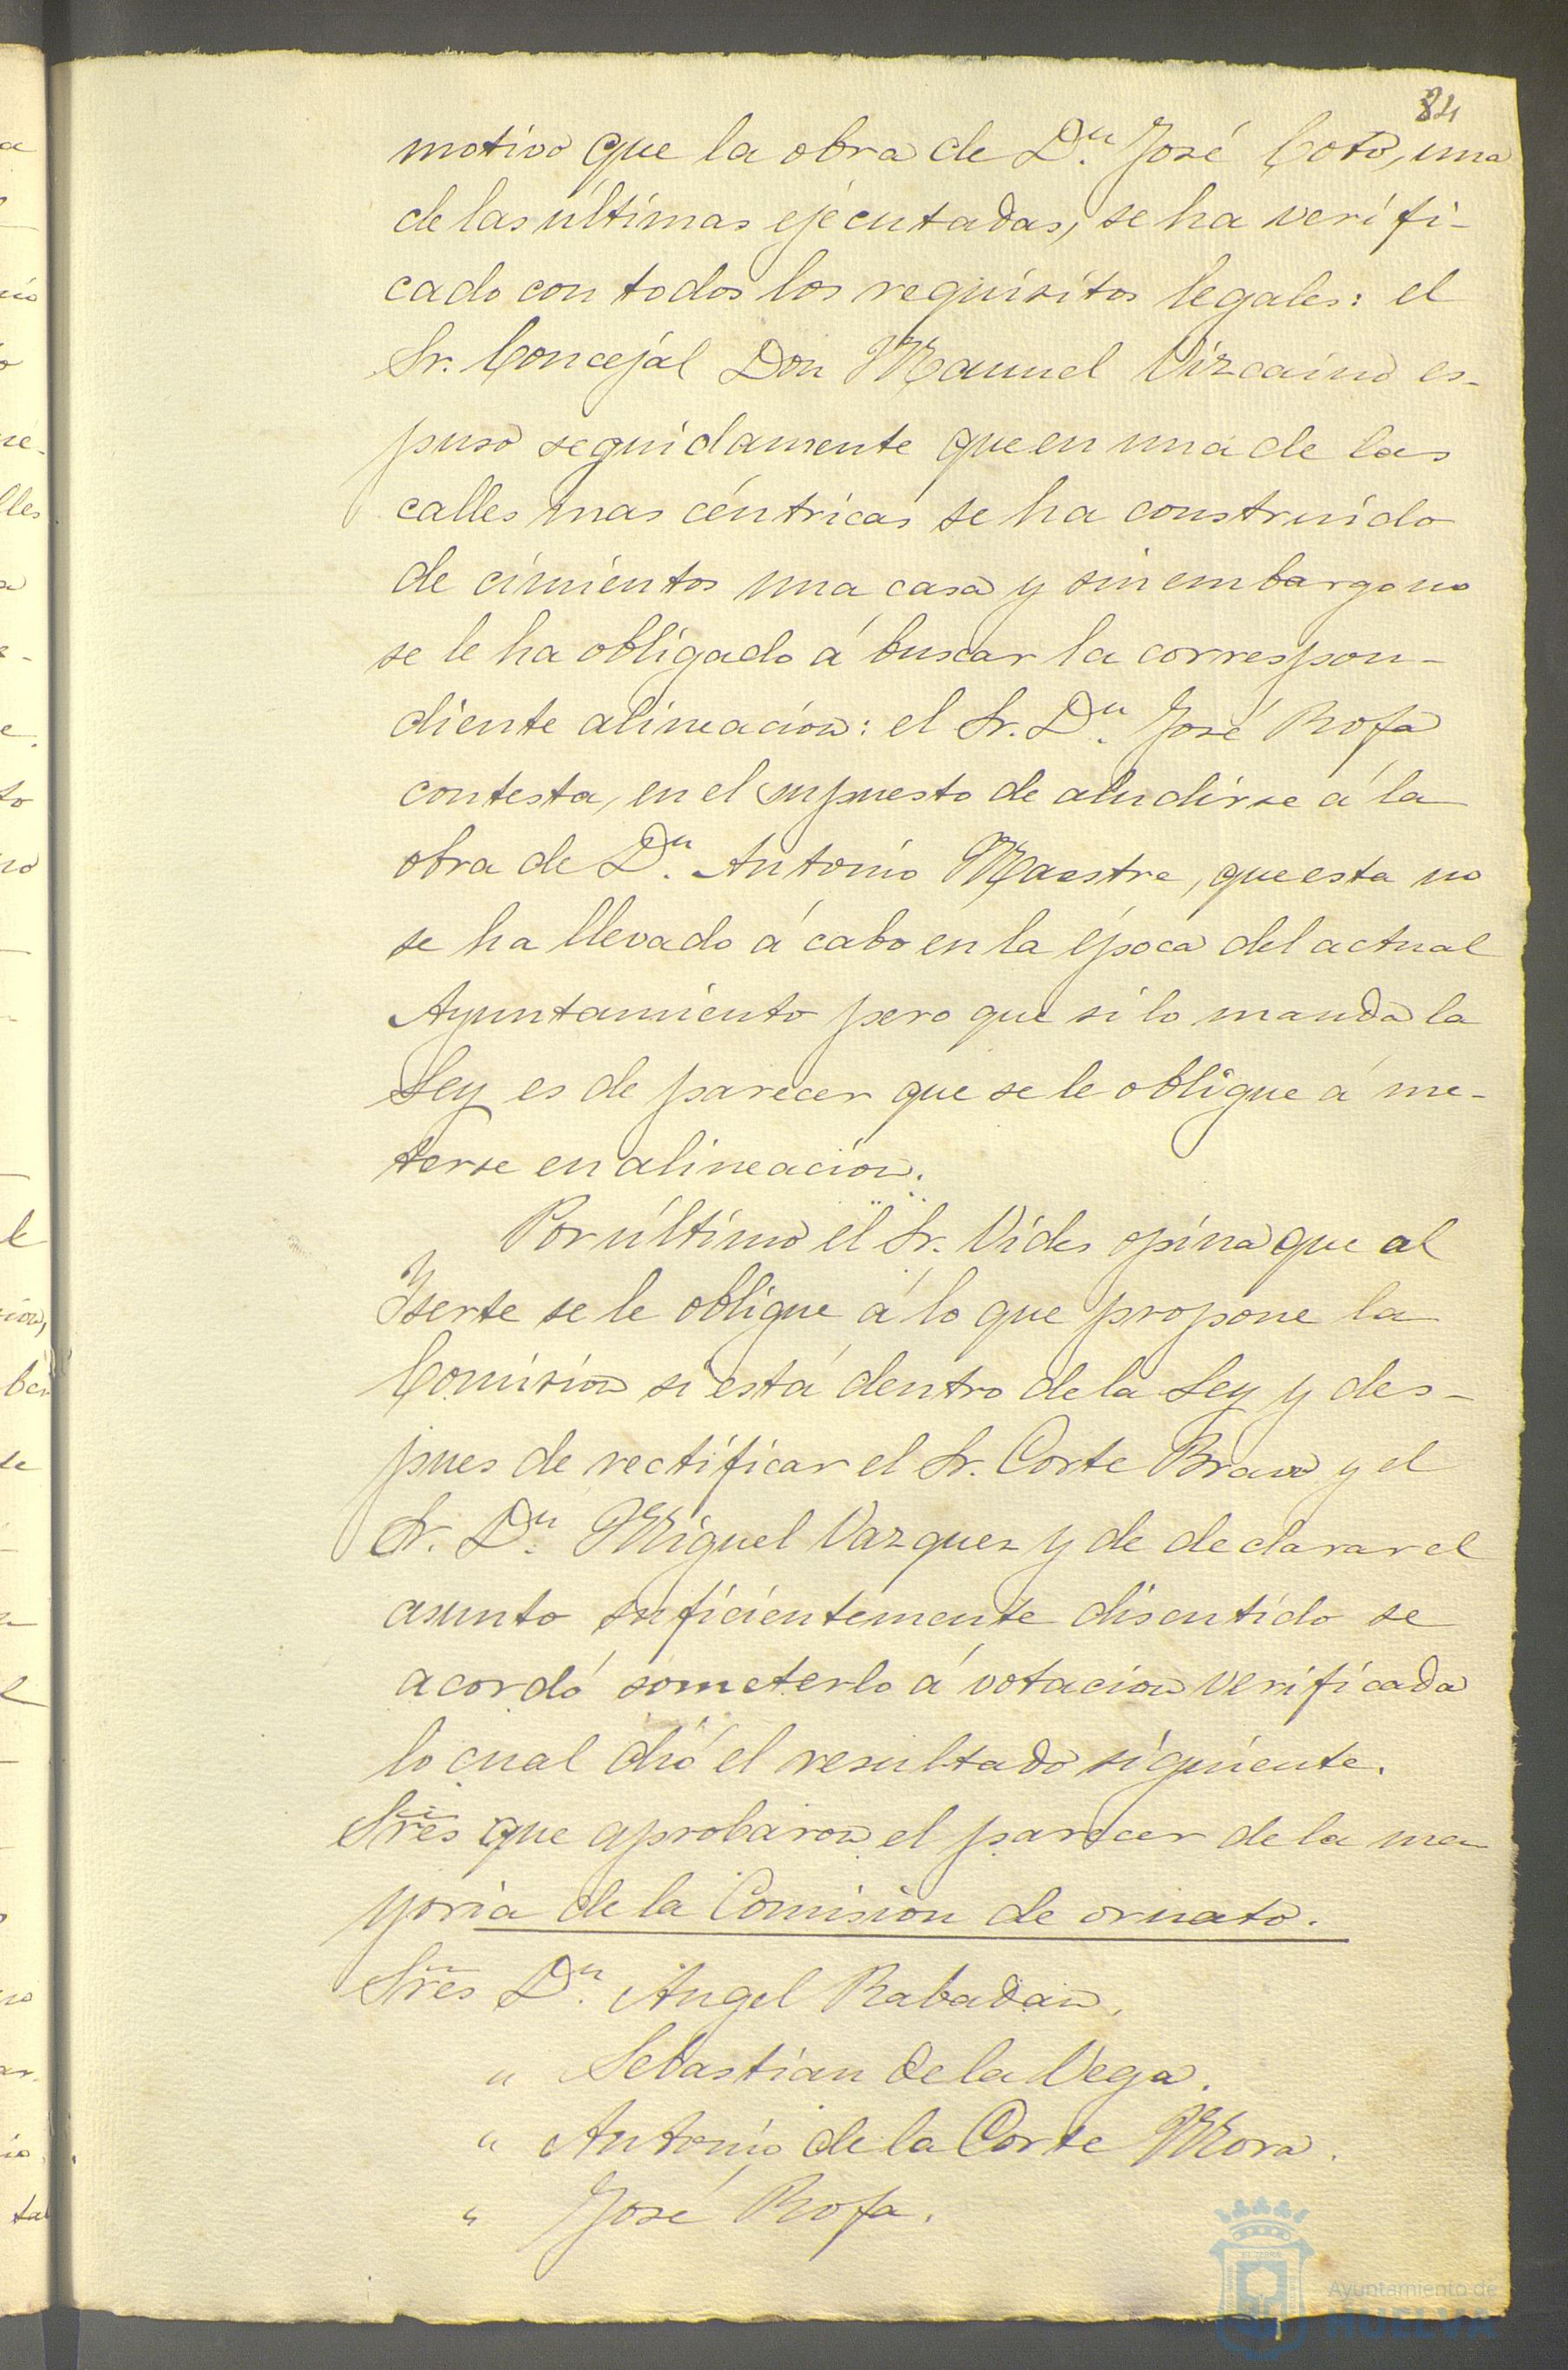 84
motivo que la obra de D.ⁿ José Coto, una
de las últimas ejecutadas, se ha verifi-
cado con todos los requisitos legales: el
Sr. Concejal Don Manuel Vizcaino es-
puso seguidamente que en una de las
calles mas céntricas se ha construido
de cimientos una casa y sin embargo no
se le ha obligado á buscar la correspon-
diente alineacion: el Sr. D.ⁿ José Rofa
contesta, en el supuesto de aludirse á la
obra de D.ⁿ Antonio Maestre, que esta no
se ha llevado á cabo en la época del actual
Ayuntamiento pero que si lo manda la
Ley es de parecer que se le obligue á me-
terse en alineacion.
Por último el Sr. Vides opina que al
Yserte se le obligue á lo que propone la
Comision si está dentro de la Ley y des-
pues de rectificar el Sr. Corte Bravo y el
Sr. D.ⁿ Miguel Vazquez y de declarar el
asunto suficientemente discutido se
acordó someterlo á votacion verificada
lo cual dió el resultado siguiente.
Sres que aprobaron el parecer de la ma
yoria de la Comision de ornato.
Sres D.ⁿ Angel Rabadan.
" Sebastian de la Vega.
" Antonio de la Corte Mora.
" José Rofa.
Ayuntamiento de
HUELVA